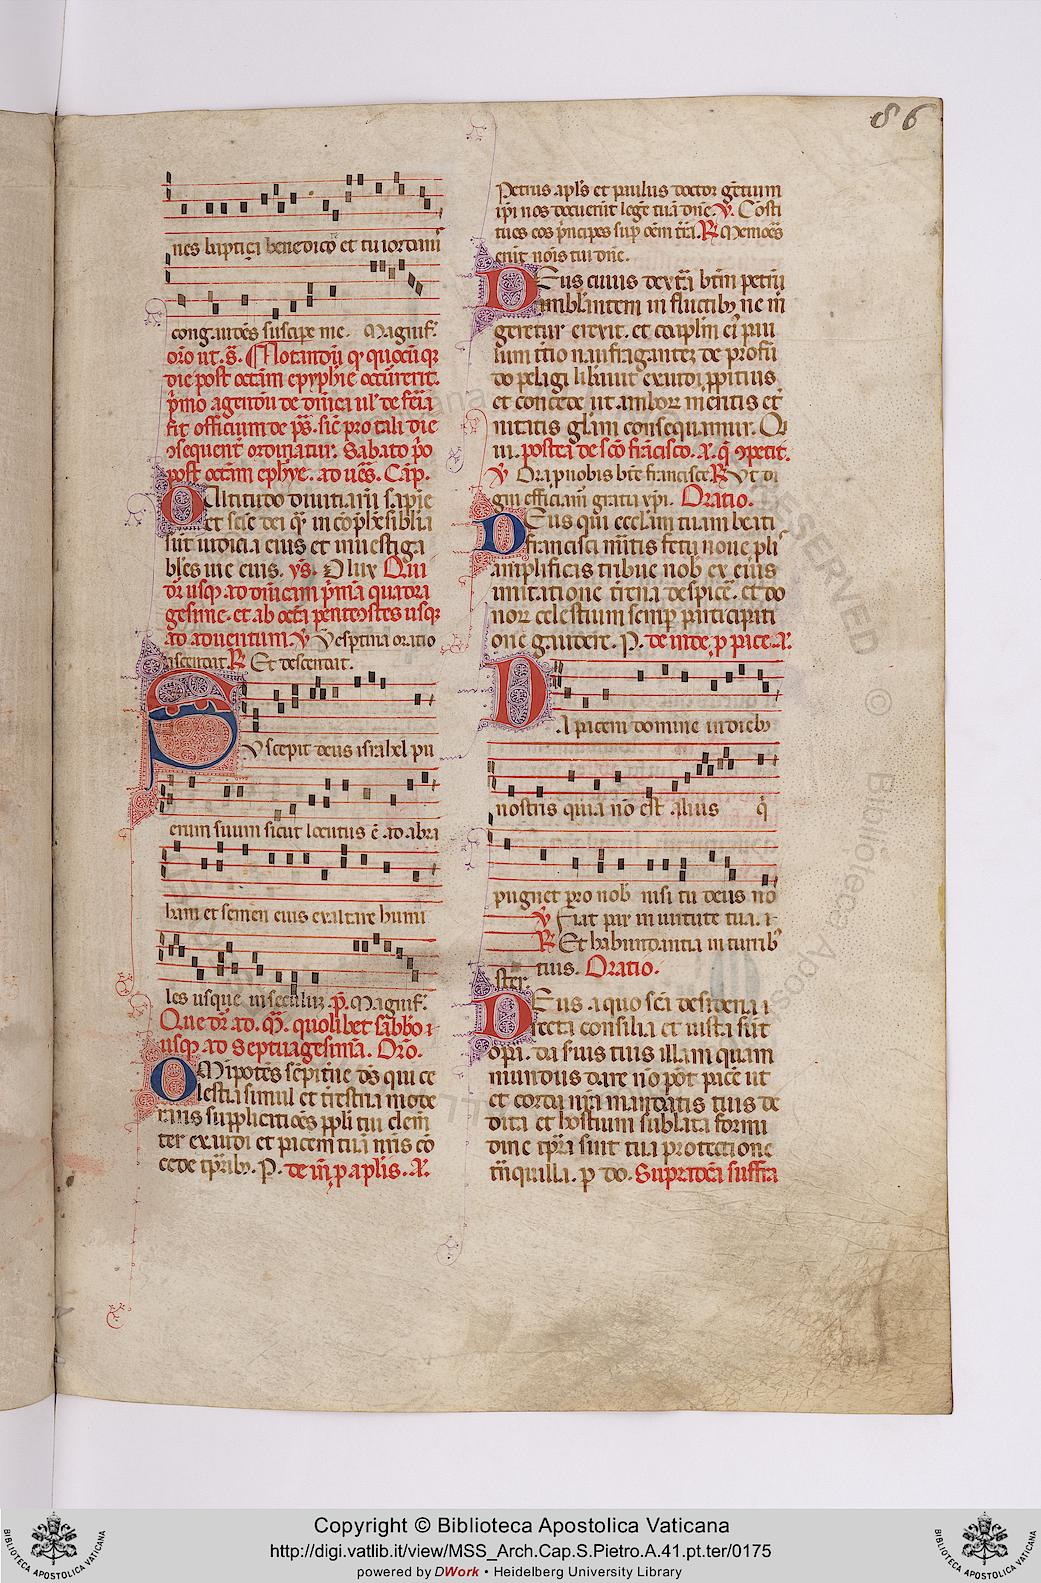 86
nes baptiçi benedico et tu iordanis
congaudēs suscipe me. Magnif.
oro ut. s̄. Notandū q quocūq
die post octām epyphīe occūrerit.
pmo agendū de dnica ul de feria
fit officium de ps. sic pro tali die
ↄsequent ordinatur. Sabato po
post octām ephye. ad ues. Cap.
O Altitudo diuitiarū sapie
et scie dei q incōpħēsibilia
sūt iudicia eius et inuestiga
biles uie eius. ys. O lux Qui
dr usq ad dnicam pmā quadra
gesime. et ab octa pentecostes usq
ad aduentum. V Vesptina oratio
ascendat. R Et descendat.
Suscepit deus israhel pu
erum suum sicut locutus ē ad abra
ham et semen eius exaltare humi
les usque in seculū. p. Magnif.
Que dr ad. M. quolibet sabbo
usq ad septuagesimā. Oro.
OMipotēs sempitne ds qui ce
lestia simul et trestria mode
raris supplicatiōes ppli tui clem
ter exaudi et pacem tuā nris cō
cede tprib. P. de in p aplis. A.
Petrus apls et paulus doctor gētium
ipi nos docuerūt legē tuā dne. V. Costi
tues eos pncipes sup oem trā. R Memores
erūt nois tui dne.
Deus cuius dextra btm petrū
ambulantem in fluctib ne m
geretur erexit. et coaplm ei pau
lum tertio naufragantez de profū
do pelagi liberauit exaudi ppitius
et concede ut amborz meritis et
nitatis glam consequamur. Q
ui. postea de sco francisco. A. q ↄpetit.
V Ora pnobis bte francisce. R Vt di
gni efficiam gratia xpi. Oratio.
Deus qui ecclam tuam beati
francisci meritis fetu noue pli
amplificas tribue nob ex eius
imitatione terrena despice. et do
nor celestium semp participati
one gaudere. P. de inde p pace. A.
Da pacem domine in dieb
nostris quia nō est alius q
pugnet pro nob nisi tu deus no
ster.
V Fiat pax in uirtute tua.
R Et habundantia in turrib
tuis. Oratio.
Deus a quo sca desideria
recta consilia et iusta sūt
opa. da suis tuis illam quam
mundus dare nō pot pacē ut
et corda nra mandatis tuis de
dita et hostium sublata formi
dine tpra sint tua protectione
trāquilla. p do. Supradca suffra
Copyright © Biblioteca Apostolica Vaticana
http://digi.vatlib.it/view/MSS_Arch.Cap.S.Pietro.A.41.pt.ter/0175
powered by DWork • Heidelberg University Library
BIBLIOTECA APOSTOLICA VATICANA
BIBLIOTECA APOSTOLICA VATICANA